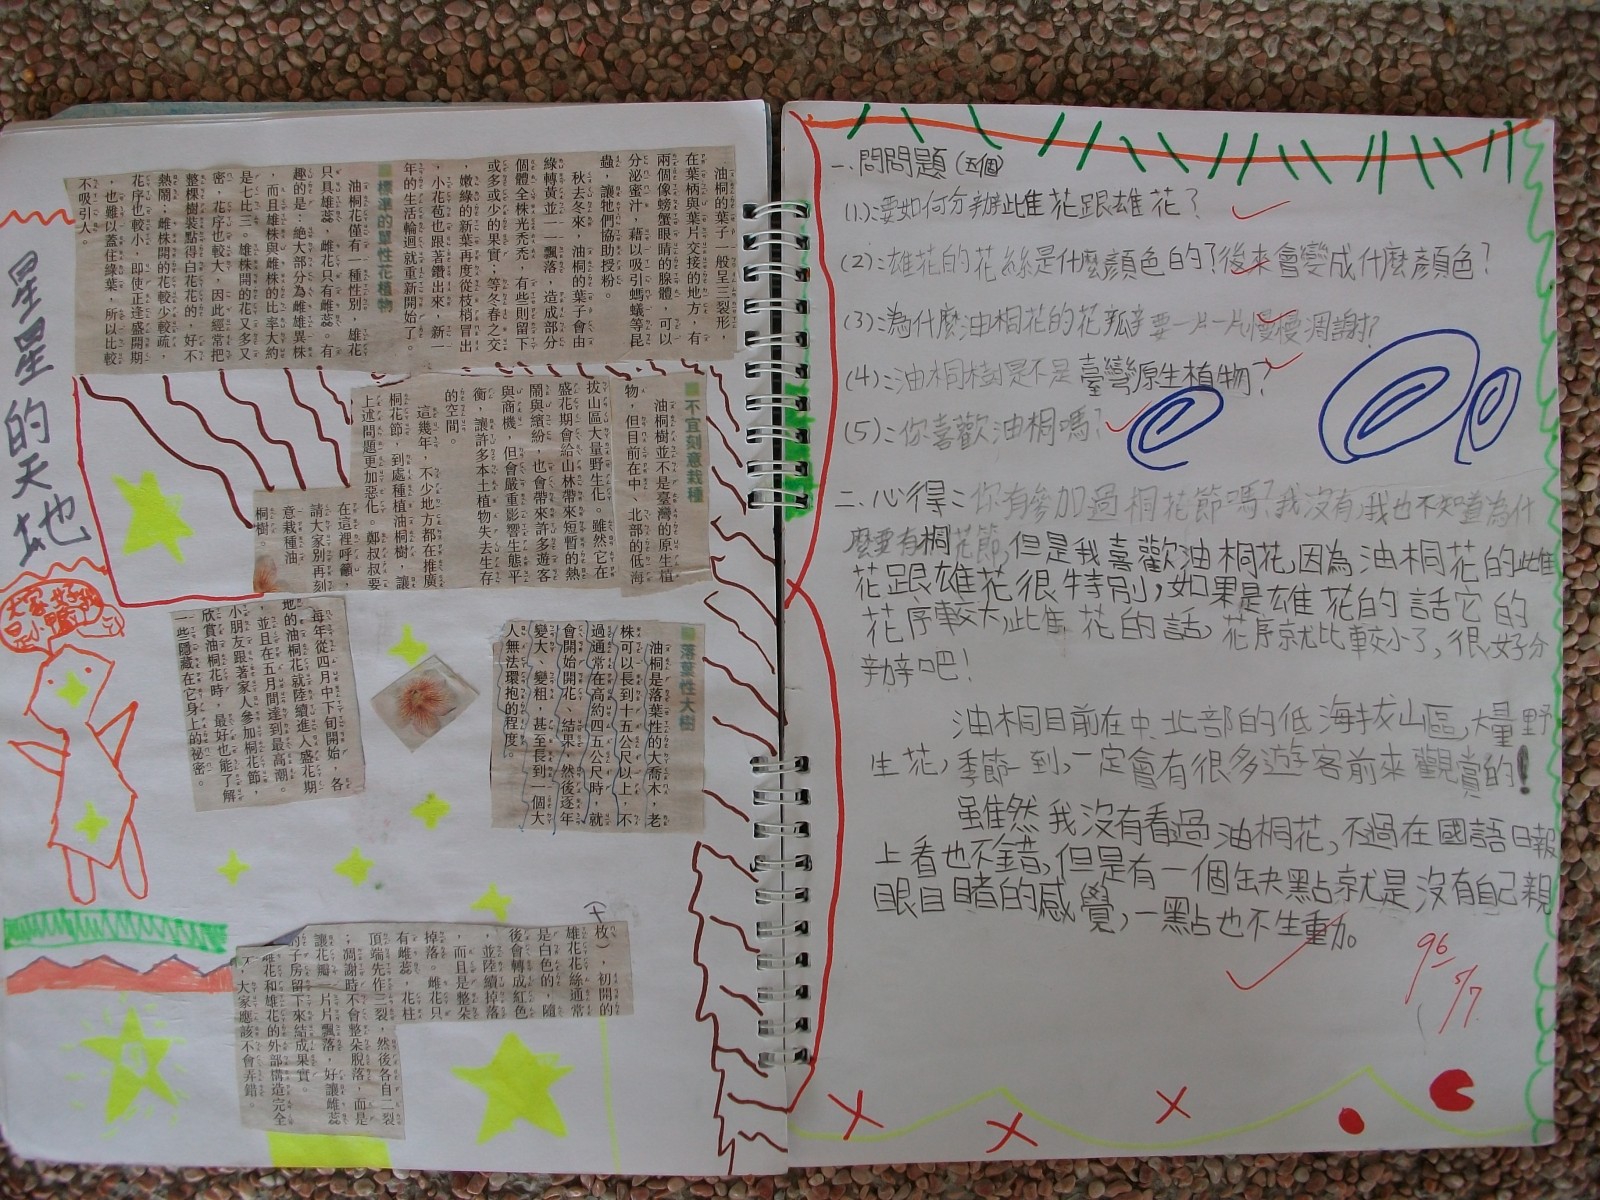 星星的天地
油桐的葉子一般呈三裂形，
在葉柄與葉片交接的地方，有
兩個像螃蟹眼睛的腺體，可以
分泌蜜汁，藉以吸引螞蟻等昆
蟲，讓牠們協助授粉。
秋去冬來，油桐的葉子會由
綠轉黃並一一飄落，造成部分
個體全株光禿禿，有些則留下
或多或少的果實；等冬春之交
，嫩綠的新葉再度從枝梢冒出
，小花苞也跟著鑽出來，新一
年的生活輪迴就重新開始了。
標準的單性花植物
油桐花僅有一種性別，雄花
只具雄蕊，雌花只有雌蕊。有
趣的是：絕大部分為雌雄異株
，而且雄株與雌株的比率大約
是七比三。雄株開的花又多又
密，花序也較大，因此經常把
整棵樹裝點得白花花的，好不
熱鬧；雌株開的花較少較疏，
花序也較小，即使正逢盛開期
，也難以蓋住綠葉，所以比較
不吸引人。
不宜刻意栽種
油桐樹並不是臺灣的原生植
物，但目前在中、北部的低海
拔山區大量野生化。雖然它在
盛花期會給山林帶來短暫的熱
鬧與繽紛，也會帶來許多遊客
與商機，但會嚴重影響生態平
衡，讓許多本土植物失去生存
的空間。
這幾年，不少地方都在推廣
桐花節，到處種植油桐樹，讓
上述問題更加惡化。鄭叔叔要
在這裡呼籲，
請大家別再刻
意栽種油
桐樹。
落葉性大樹
油桐是落葉性的大喬木，老
株可以長到十五公尺以上，不
過通常在高約四五公尺時，就
會開始開花、結果，然後逐年
變大、變粗，甚至長到一個大
人無法環抱的程度。
每年從四月中下旬開始，各
地的油桐花就陸續進入盛花期
，並且在五月間達到最高潮。
小朋友跟著家人參加桐花節，
欣賞油桐花時，最好也能了解
一些隱藏在它身上的祕密。
（十枚），初開的
雄花花絲通常
是白色的，隨
後會轉成紅色
，並陸續掉落
，而且是整朵
掉落。雌花只
有雌蕊，花柱
頂端先作三裂，然後各自二裂
；凋謝時不會整朵脫落，而是
讓花瓣一片片飄落，好讓雌蕊
的子房留下來結成果實。
雌花和雄花的外部構造完全
，大家應該不會弄錯。
一、問問題(五個)
(1)：要如何分辦雌花跟雄花？
(2)：雄花的花絲是什麼顏色的？後來會變成什麼顏色？
(3)：為什麼油桐花的花瓣要一片一片慢慢凋謝？
(4)：油桐樹是不是臺灣原生植物？
(5)：你喜歡油桐嗎？
二、心得：你有參加過桐花節嗎？我沒有，我也不知道為什
麼要有桐花節，但是我喜歡油桐花，因為油桐花的雌
花跟雄花很特別，如果是雄花的話它的
花序較大，雌花的話，花序就比較小了，很好分
辦吧！
油桐目前在中、北部的低海拔山區，大量野
生花，季節一到，一定會有很多遊客前來觀賞的！
雖然我沒有看過油桐花，不過在國語日報
上看也不錯，但是有一個缺點就是沒有自己親
眼目睹的感覺，一點也不生動。
96
5/7